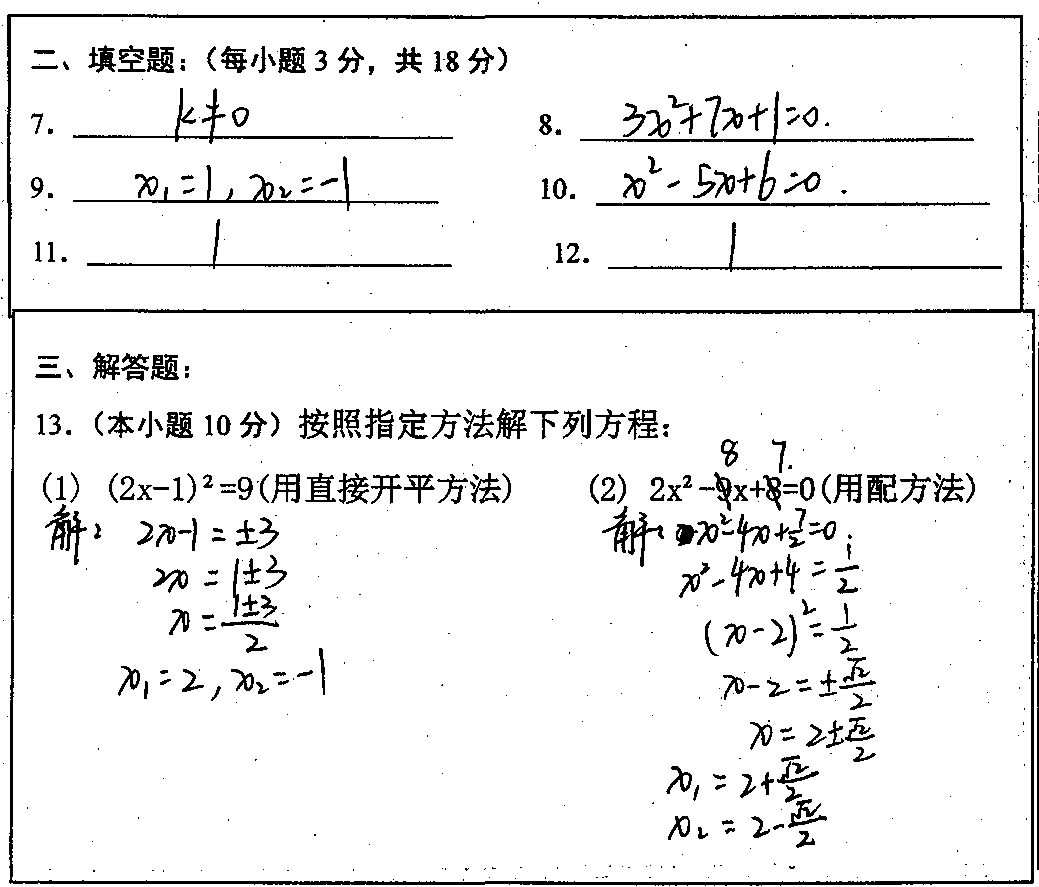 二、填空题：（每小题 3 分，共 18 分）
7. k≠0
8. 3x²+7x+1=0.
9. x₁=1, x₂=-1
10. x²-5x+6=0.
11. 1
12. 1
三、解答题：
13.（本小题 10 分）按照指定方法解下列方程：
(1) (2x-1)²=9(用直接开平方法)
解： 2x-1=±3
2x=1±3
x=(1±3)/2
x₁=2, x₂=-1
8 7.
(2) 2x²-9x+8=0(用配方法)
解： x²-4x+7/2=0
x²-4x+4=1/2
(x-2)²=1/2
x-2=±√2/2
x=2±√2/2
x₁=2+√2/2
x₂=2-√2/2